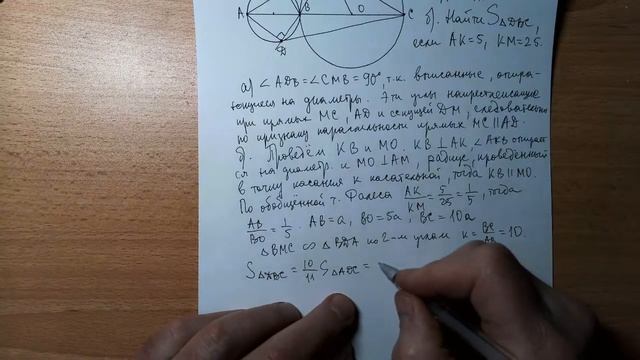 A B O C
D
б) Найти S△DBC,
если AK=5, KM=25.
а) ∠ADB=∠CMB=90°, т.к. вписанные, опира-
ющиеся на диаметры. Эти углы накрестлежащие
при прямых MC, AD и секущей DM, следовательно
по признаку параллельности прямых MC∥AD.
б). Проведём KB и MO. KB⊥AK, ∠AKB опирает-
ся на диаметр и MO⊥AM, радиус, проведённый
в точку касания к касательной, тогда KB∥MO.
По обобщённой т. Фалеса AK/KM = 5/25 = 1/5, тогда
AB/BO = 1/5. AB=a, BO=5a, BC=10a
△BMC ∽ △BDA по 2-м углам k = BC/AB = 10.
S△DBC = 10/11 S△ADC =